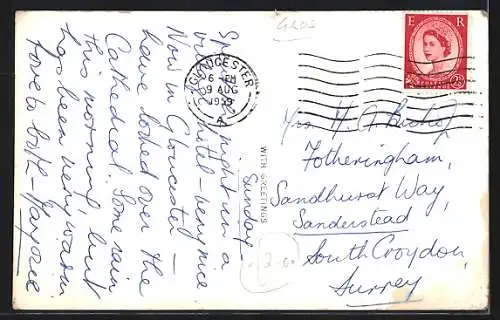 GLOS
E R
GLOUCESTER
6 PM
9 AUG
1959
A
Sunday -
Spent the night in a
village hotel - very nice
Now in Gloucester -
have looked over the
Cathedral. Some rain
this morning, but
has been very warm
Love to both - Marjorie
WITH GREETINGS
Mrs H. A
Fotheringham,
Sandhurst Way,
Sanderstead
South Croydon,
Surrey